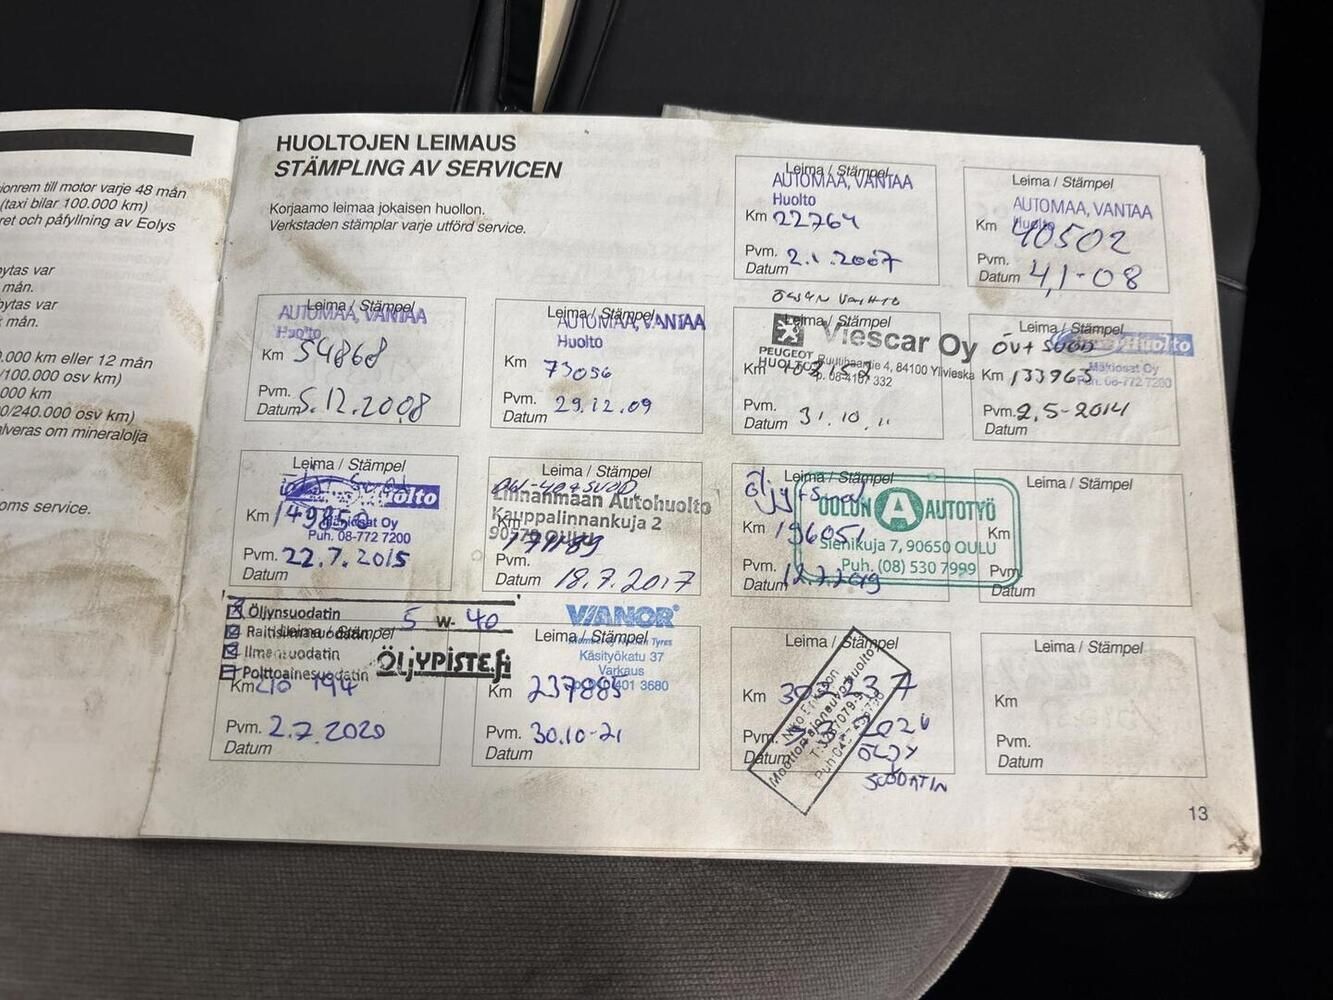 ionrem till motor varje 48 mån
(taxi bilar 100.000 km)
ret och påfyllning av Eolys
bytas var
mån.
bytas var
mån.
0.000 km eller 12 mån
/100.000 osv km)
000 km
0/240.000 osv km)
alveras om mineralolja
oms service.
HUOLTOJEN LEIMAUS
STÄMPLING AV SERVICEN
Korjaamo leimaa jokaisen huollon.
Verkstaden stämplar varje utförd service.
Leima / Stämpel
AUTOMAA, VANTAA
Huolto
Km 22764
Pvm. 2.1.2007
Datum
Leima / Stämpel
AUTOMAA, VANTAA
Huolto
Km 40502
Pvm.
Datum 4,1-08
Leima / Stämpel
AUTOMAA, VANTAA
Huolto
Km 54868
Pvm.
Datum 5.12.2008
Leima / Stämpel
AUTOMAA, VANTAA
Huolto
Km 73056
Pvm. 29.12.09
Datum
Leima / Stämpel
Viescar Oy
PEUGEOT
HUOLTO
4, 84100 Ylivieska
Km
Pvm. 31.10.11
Datum
Leima / Stämpel
ÖV+SUOD
Huolto
Mäkiosat Oy
Puh. 08-772 7200
Km 133963
Pvm. 2.5-2014
Datum
Leima / Stämpel
Huolto
Mäkiosat Oy
Puh. 08-772 7200
Km 149850
Pvm. 22.7.2015
Datum
Leima / Stämpel
Linnanmaan Autohuolto
Kauppalinnankuja 2
90570 OULU
Km
Pvm.
Datum 18.7.2017
Leima / Stämpel
öljy+suod
OULUN A AUTOTYÖ
Sienikuja 7, 90650 OULU
Puh. (08) 530 7999
Km 196051
Pvm. 12.7.2019
Datum
Leima / Stämpel
Km
Pvm.
Datum
Öljynsuodatin 5 W- 40
Raitisilmasuodatin
Ilmansuodatin
Polttoainesuodatin
ÖLJYPISTE.fi
Leima / Stämpel
Km 210 194
Pvm. 2.7.2020
Datum
VIANOR
Leima / Stämpel
Käsityökatu 37
Varkaus
401 3680
Km 237885
Pvm. 30.10-21
Datum
Leima / Stämpel
Km
Pvm. 2026
Datum ÖLJY
SUODATIN
Leima / Stämpel
Km
Pvm.
Datum
13